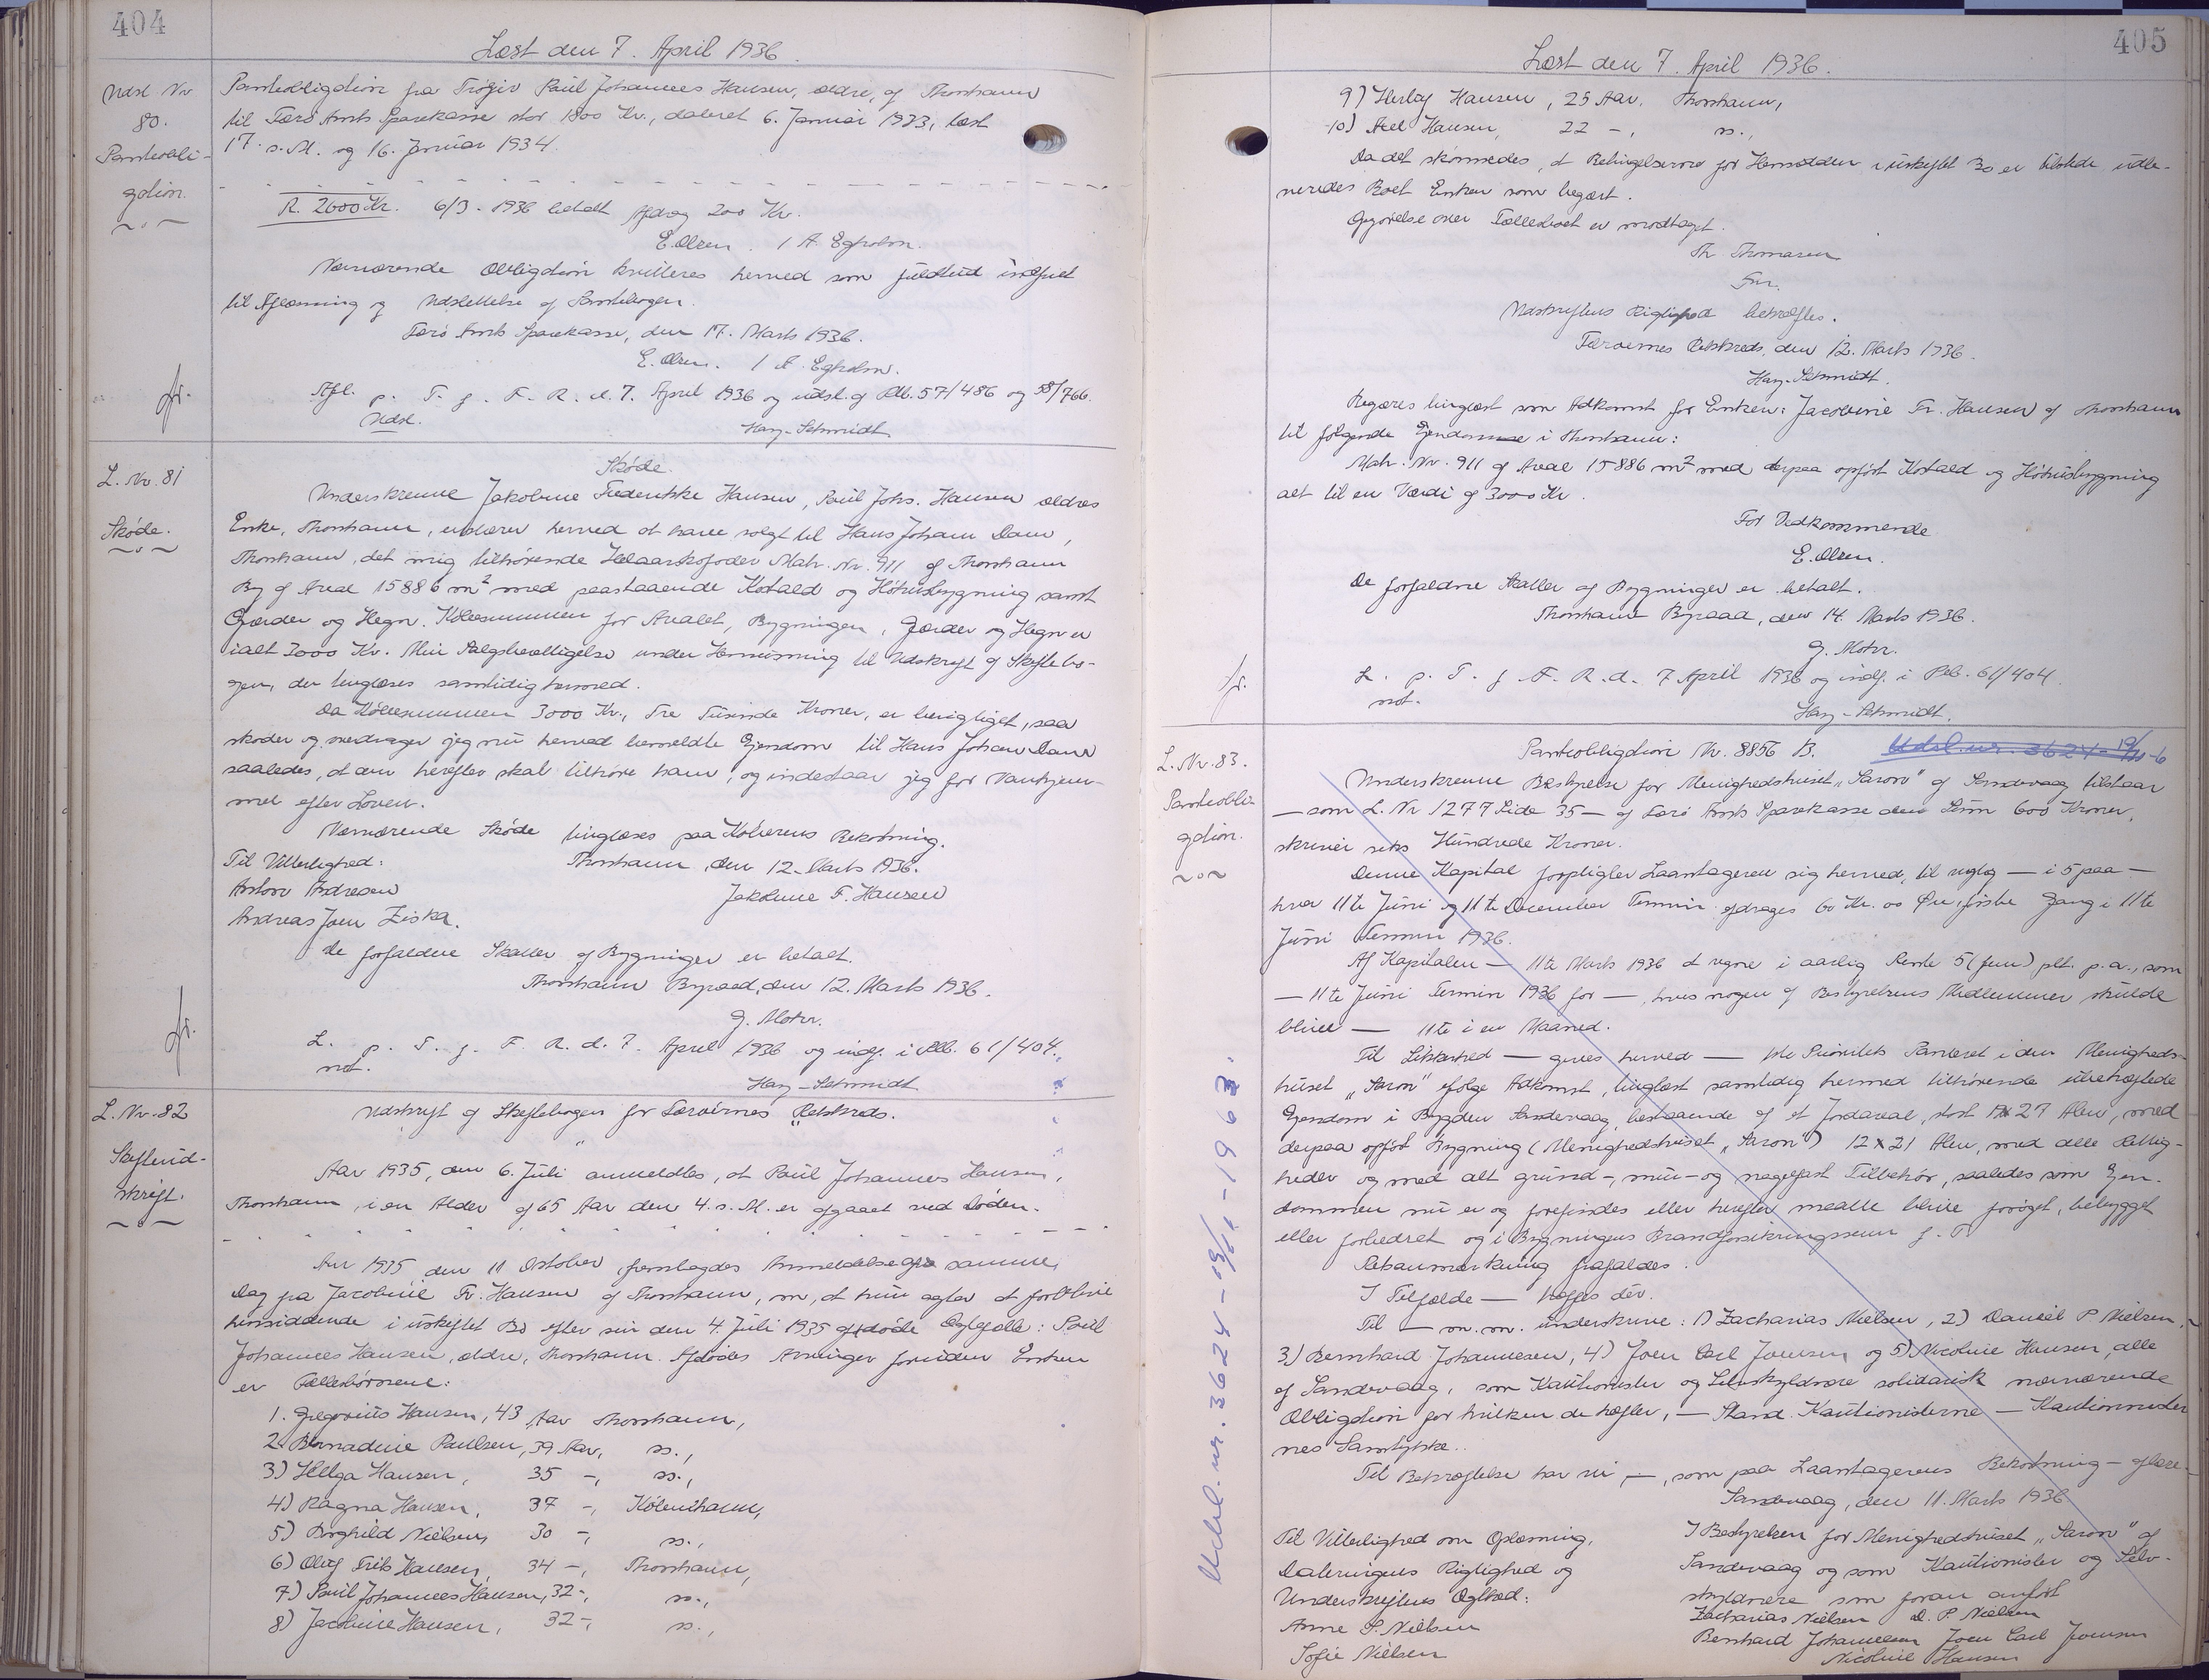 404
Læst den 7. April 1936.
Udsl. Nr
80.
Panteobli-
gation.
Panteobligation fra Poul Johannes Hansen, ældre, af Thorshavn
til Færø Amts Sparekasse stor 1800 Kr., dateret 6. Januar 1923, læst
17. s.M. og 16. Januar 1934.
R. 2600 Kr. 6/3-1936 betalt Afdrag 200 Kr.
E. Olsen. / A. Egholm.
Nærværende Obligation kvitteres herved som fuldtud indfriet
til Aflæsning og Udslettelse af Pantebogen.
Færø Amts Sparekasse, den 17. Marts 1936.
E. Olsen. / A. Egholm.
Afl. p. T. f. F. R. d. 7. April 1936 og udsl. af Pb. 57/486 og 58/766.
Udsl.
Hay-Schmidt
L. Nr. 81
Skøde.
Skøde.
Underskrevne Jakobine Frederikke Hansen, Poul Johs. Hansen ældres
Enke, Thorshavn, erklærer herved at have solgt til Hans Johann Dam,
Thorshavn, det mig tilhørende Matr. Nr. 911 af Thorshavn
By af Areal 15886 m² med paastaaende Kostald og Høhusbygning samt
Gærder og Hegn. Købesummen for Arealet, Bygningen, Gærder og Hegn er
ialt 3000 Kr. Min Salgsbevilligelse under Henvisning til Udskrift af Skiftebo-
gen, der tinglæses samtidig hermed.
Da Købesummen 3000 Kr., Tre Tusinde Kroner, er berigtiget, saa
skøder og overdrager jeg nu herved bemeldte Ejendom til Hans Johan Dam
saaledes, at den herefter skal tilhøre ham, og indestaar jeg for Vanhjem-
mel efter Loven.
Nærværende Skøde tinglæses paa Køberens Bekostning.
Til Vitterlighed: Thorshavn, den 12. Marts 1936.
Anton Andreasen Jakobine F. Hansen
Andreas Joen Ziska.
De forfaldne Skatter af Bygninger er betalt.
Thorshavn Byraad, den 12. Marts 1936.
J. Mohr.
L. p. T. f. F. R. d. 7. April 1936 og indf. i Pb. 61/404.
not.
Hay-Schmidt
L. Nr. 82
Skifteud-
skrift.
Udskrift af Skiftebogen for Færøernes Retskreds.
Aar 1935, den 6. Juli anmeldtes, at Poul Johannes Hansen,
Thorshavn, i en Alder af 65 Aar den 4. s.M. er afgaaet ved Døden.
Aar 1935 den 11 Oktober fremlagdes Anmeldelse af samme
Dag fra Jacobine Fr. Hansen af Thorshavn, om, at hun agter at forblive
hensiddende i uskiftet Bo efter sin den 4. Juli 1935 afdøde Ægtefælle: Poul
Johannes Hansen, ældre, Thorshavn. Afdødes Arvinger foruden Enken
er Fællesbørnene:
1. Gregorius Hansen, 43 Aar Thorshavn,
2. Bernadine Paulsen, 39 Aar, ss.,
3) Helga Hansen, 35 -, ss.,
4) Ragna Hansen, 37 -, København,
5) Borghild Nielsen, 30 -, ss.,
6) Oluf Frits Hansen, 34 -, Thorshavn,
7) Poul Johannes Hansen, 32 -, ss.,
8) Jacobine Hansen, 32 -, ss.,
405
Læst den 7. April 1936.
9) Herlug Hansen, 25 Aar, Thorshavn,
10) Axel Hansen, 22 -, ss.,
Da det skønnedes, at Betingelserne for Hensidden i uskiftet Bo er tilstede udle-
veredes Boet Enken som begært.
Opgørelse over Fællesboet er modtaget.
Th. Thomasen
Fm.
Udskriftens Rigtighed bekræftes.
Færøernes Retskreds, den 12. Marts 1936.
Hay-Schmidt.
Begæres tinglæst som Adkomst for Enken: Jacobine Fr. Hansen af Thorshavn
til følgende Ejendomme i Thorshavn:
Matr. Nr. 911 af Areal 15886 m² med derpaa opført Kostald og Høhusbygning
alt til en Værdi af 3000 Kr.
For Vedkommende
E. Olsen.
De forfaldne Skatter af Bygninger er betalt.
Thorshavn Byraad, den 14. Marts 1936.
J. Mohr.
L. p. T. f. F. R. d. 7 April 1936 og indf. i Pb. 61/404
not.
Hay-Schmidt.
L. Nr. 83.
Panteobli-
gation.
Panteobligation Nr. 8856 B. Udsl. nr. 3624-19/11-6
Underskrevne Bestyrelse for Menighedshuset "Saron" af Sandevaag tilstaar
— som L. Nr 1277 Side 35 — af Færø Amts Sparekasse den Sum 600 Kroner,
skriver seks Hundrede Kroner.
Denne Kapital forpligter Laantageren sig herved, til — i 5 paa —
hver 11te Juni og 11te December Termin afdrages 60 Kr. 00 Øre, første Gang i 11te
Juni Termin 1936.
Af Kapitalen — 11te Marts 1936 at regne i aarlig Rente 5 (fem) pCt. p.a., som
— 11te Juni Termin 1936 for —, hvis nogen af Bestyrelsens Medlemmer skulde
blive — 11te i en Maaned.
Til Sikkerhed — gives herved — 1ste Prioritets Panteret i den Menigheds-
huset "Saron" ifølge Adkomst, tinglæst samtidig hermed tilhørende ubehæftede
Ejendom i Bygden Sandevaag, bestaaende af et Jordareal, stort 27 Alen, med
derpaa opført Bygning (Menighedshuset "Saron") 12 x 21 Alen, med alle Rettig-
heder og med alt grund-, mur- og nagelfast Tilbehør, saaledes som Ejen-
dommen nu er og forefindes eller herefter maatte blive forøget, bebygget
eller forbedret og i Bygningens Brandforsikringssum f. T
Retsanmærkning frafaldes.
I Tilfælde — hæftes dér.
Til — m.m. underskrive: 1) Zacharias Nielsen, 2) Daniel P. Nielsen,
3) Bernhard Johannesen, 4) Joen Carl Joensen og 5) Nicoline Hansen, alle
af Sandevaag, som Kautionister og Selvskyldnere solidarisk nærværende
Obligation for hvilken de hæfter, — Stand. Kautionisterne — Kautionister
nes Samtykke.
Til Bekræftelse har vi —, som paa Laantagerens Bekostning — aflæse-
Sandevaag, den 11. Marts 1936
Til Vitterlighed om Oplæsning,
Dateringens Rigtighed og
Underskriftens Ægthed:
Anne S. Nielsen
Sofie Nielsen
I Bestyrelsen for Menighedshuset "Saron" af
Sandevaag og som Kautionister og Selv-
skyldnere som foran anført
Zacharias Nielsen D. P. Nielsen
Bernhard Johannesen Joen Carl Joensen
Nicoline Hansen
Udsl. nr. 3624-19/11-1963.